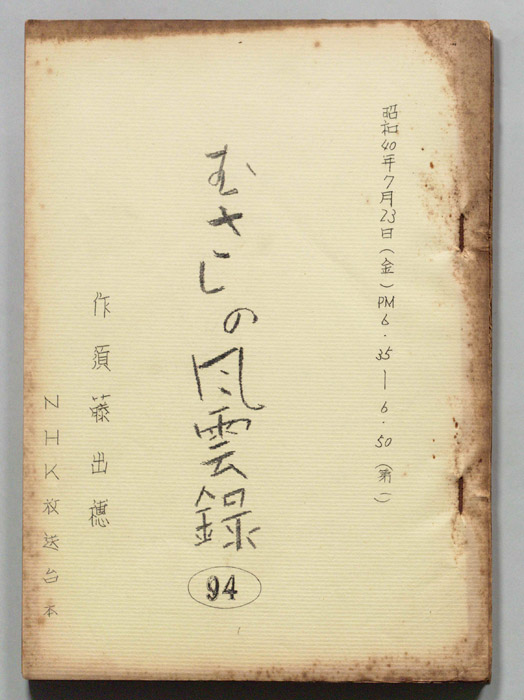 昭和40年7月23日(金)PM6.35—6.50(第一)
むさしの風雲録
94
作 須藤出穂
NHK放送台本